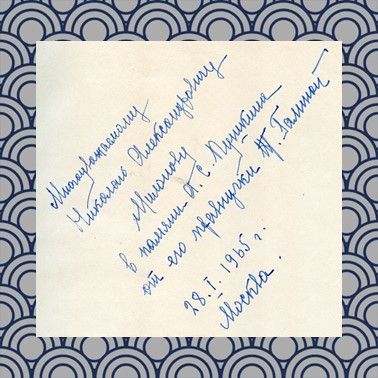 Многоуважаемому
Николаю Александровичу
Милонову
в память А. С. Пушкина
от его правнучки Т. Галиной
28. I. 1965 г.
Москва.